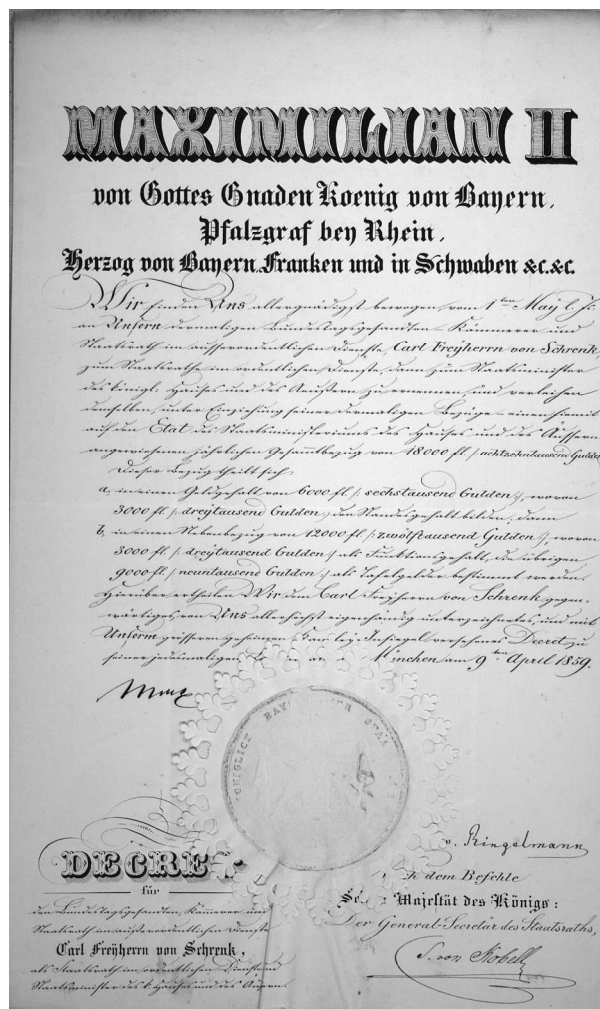 MAXIMILIAN II
von Gottes Gnaden Koenig von Bayern,
Pfalzgraf bey Rhein,
Herzog von Bayern, Franken und in Schwaben &c.&c.
Wir finden Uns allergnädigst bewogen, vom 1ten May l. Js.
an Unsern dermaligen Bundestagsgesandten, Kämmerer und
Staatsrath im ausserordentlichen Dienste, Carl Freÿherrn von Schrenk,
zum Staatsrathe im ordentlichen Dienste, dann zum Staatsminister
des königl. Hauses und des Aeußern zu ernennen, und verleihen
demselben, unter Einziehung seiner dermaligen Bezüge einen hiemit
auf den Etat des Staatsministeriums des Hauses und des Äussern
angewiesenen jährlichen Gesamtbezug von 18000 fl /: achtzehntausend Gulden
Dieser Bezug theilt sich
a, in einen Geldgehalt von 6000 fl /: sechstausend Gulden :/, wovon
3000 fl /: dreÿtausend Gulden :/ den Standesgehalt bilden, dann
b, in einen Nebenbezug von 12000 fl /: zwölftausend Gulden :/, wovon
3000 fl /: dreÿtausend Gulden :/ als Funktionsgehalt, die übrigen
9000 fl /: neuntausend Gulden :/ als Tafelgelder bestimmt werden.
Hierüber ertheilen Wir dem Carl Freÿherrn von Schrenk gegen-
wärtiges, von Uns allerhöchst eigenhändig unterzeichnetes, und mit
Unserm grösseren geheimen Kanzley-Insiegel versehenes Decret zu
seiner jedesmaligen München am 9ten April 1859.
Max
KOENIGLICH BAYERISCHER STAA
v. Ringelmann
DECRET
für
den Bundestagsgesandten, Kämmerer und
Staatsrath im ausserordentlichen Dienste
Carl Freÿherrn von Schrenk,
als Staatsrath im ordentlichen Dienste und
Staatsminister des k. Hauses und des Äußern.
dem Befehle
Majestät des Königs:
Der General-Secretär des Staatsraths,
S. von Kobell